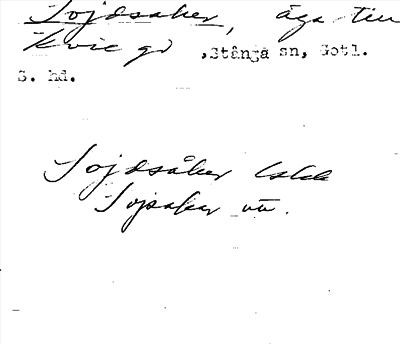 Sojdsaker, äga till
Kvie gd , Stånga sn, Gotl.
S. hd.
Sojdsåker
Sojsakar